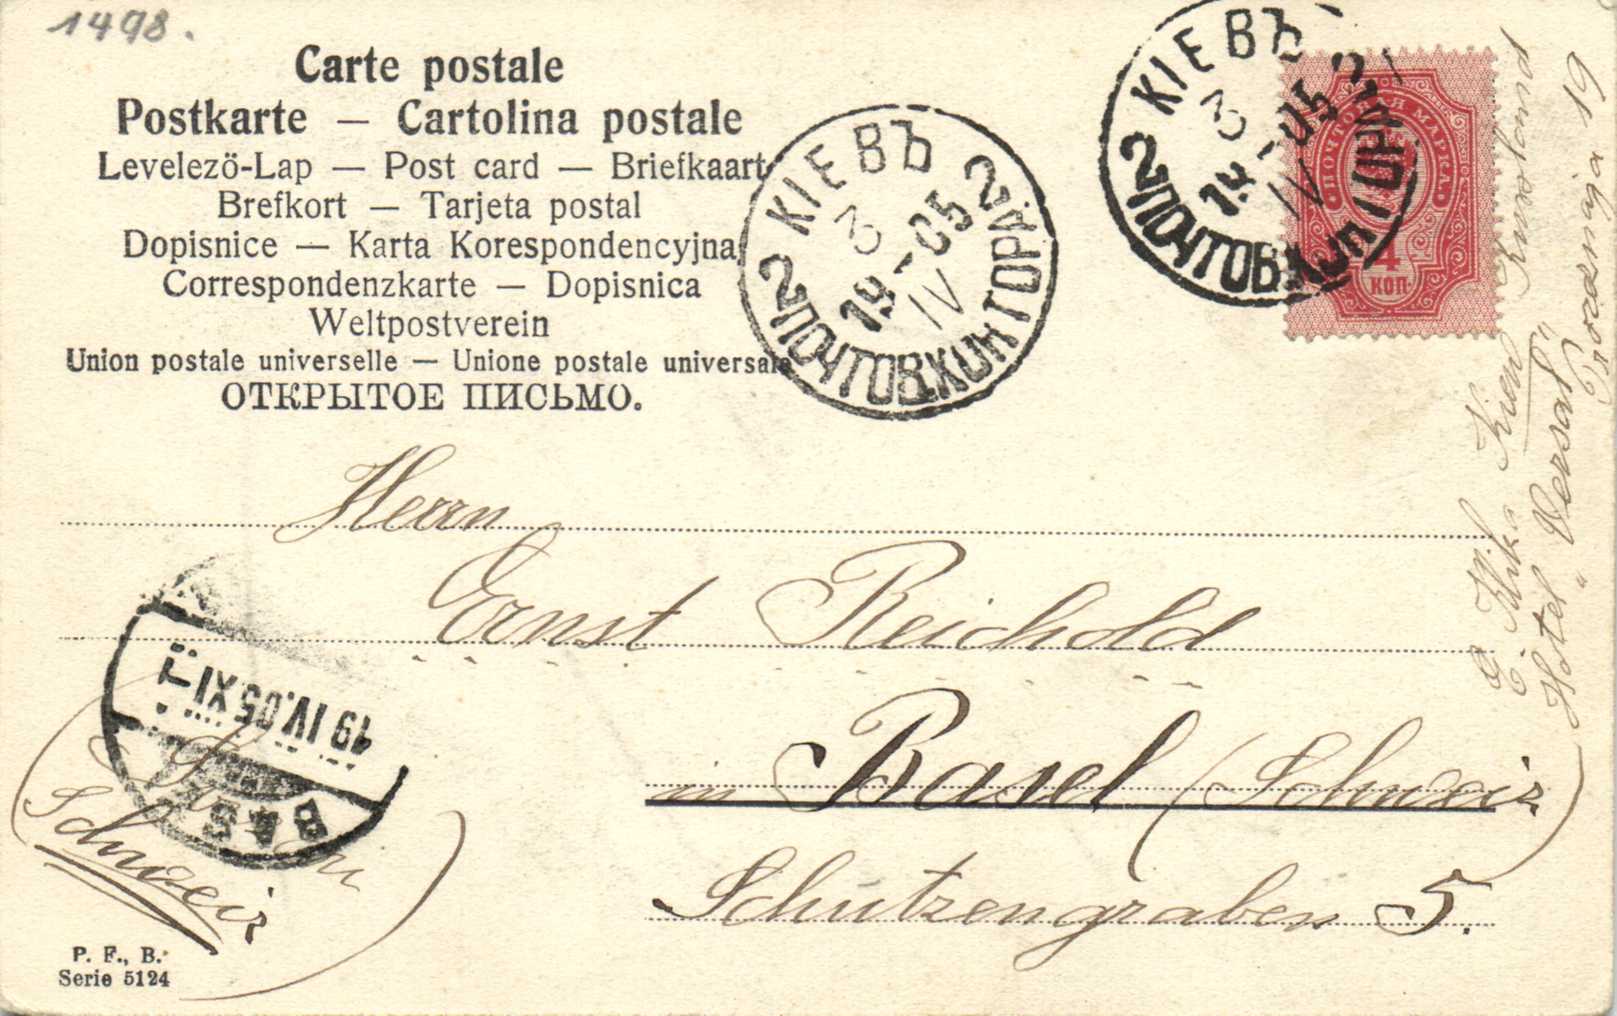 1498.
Carte postale
Postkarte — Cartolina postale
Levelezö-Lap — Post card — Briefkaart
Brefkort — Tarjeta postal
Dopisnice — Karta Korespondencyjna
Correspondenzkarte — Dopisnica
Weltpostverein
Union postale universelle — Unione postale universale
ОТКРЫТОЕ ПИСЬМО.
КІЕВЪ
3
19-IV-05
2 ПОЧТОВ. 2
КІЕВЪ
3
19-IV-05
2 ПОЧТОВ. 2
ПОЧТОВАЯ МАРКА
4
КОП.
Herrn
Ernst Reichold
in Basel (Schweiz)
Schützengraben 5.
(Schweiz)
19 IV.05 XI
BAS
Kiew Russland
Hotel „Versal"
19
P. F., B.
Serie 5124